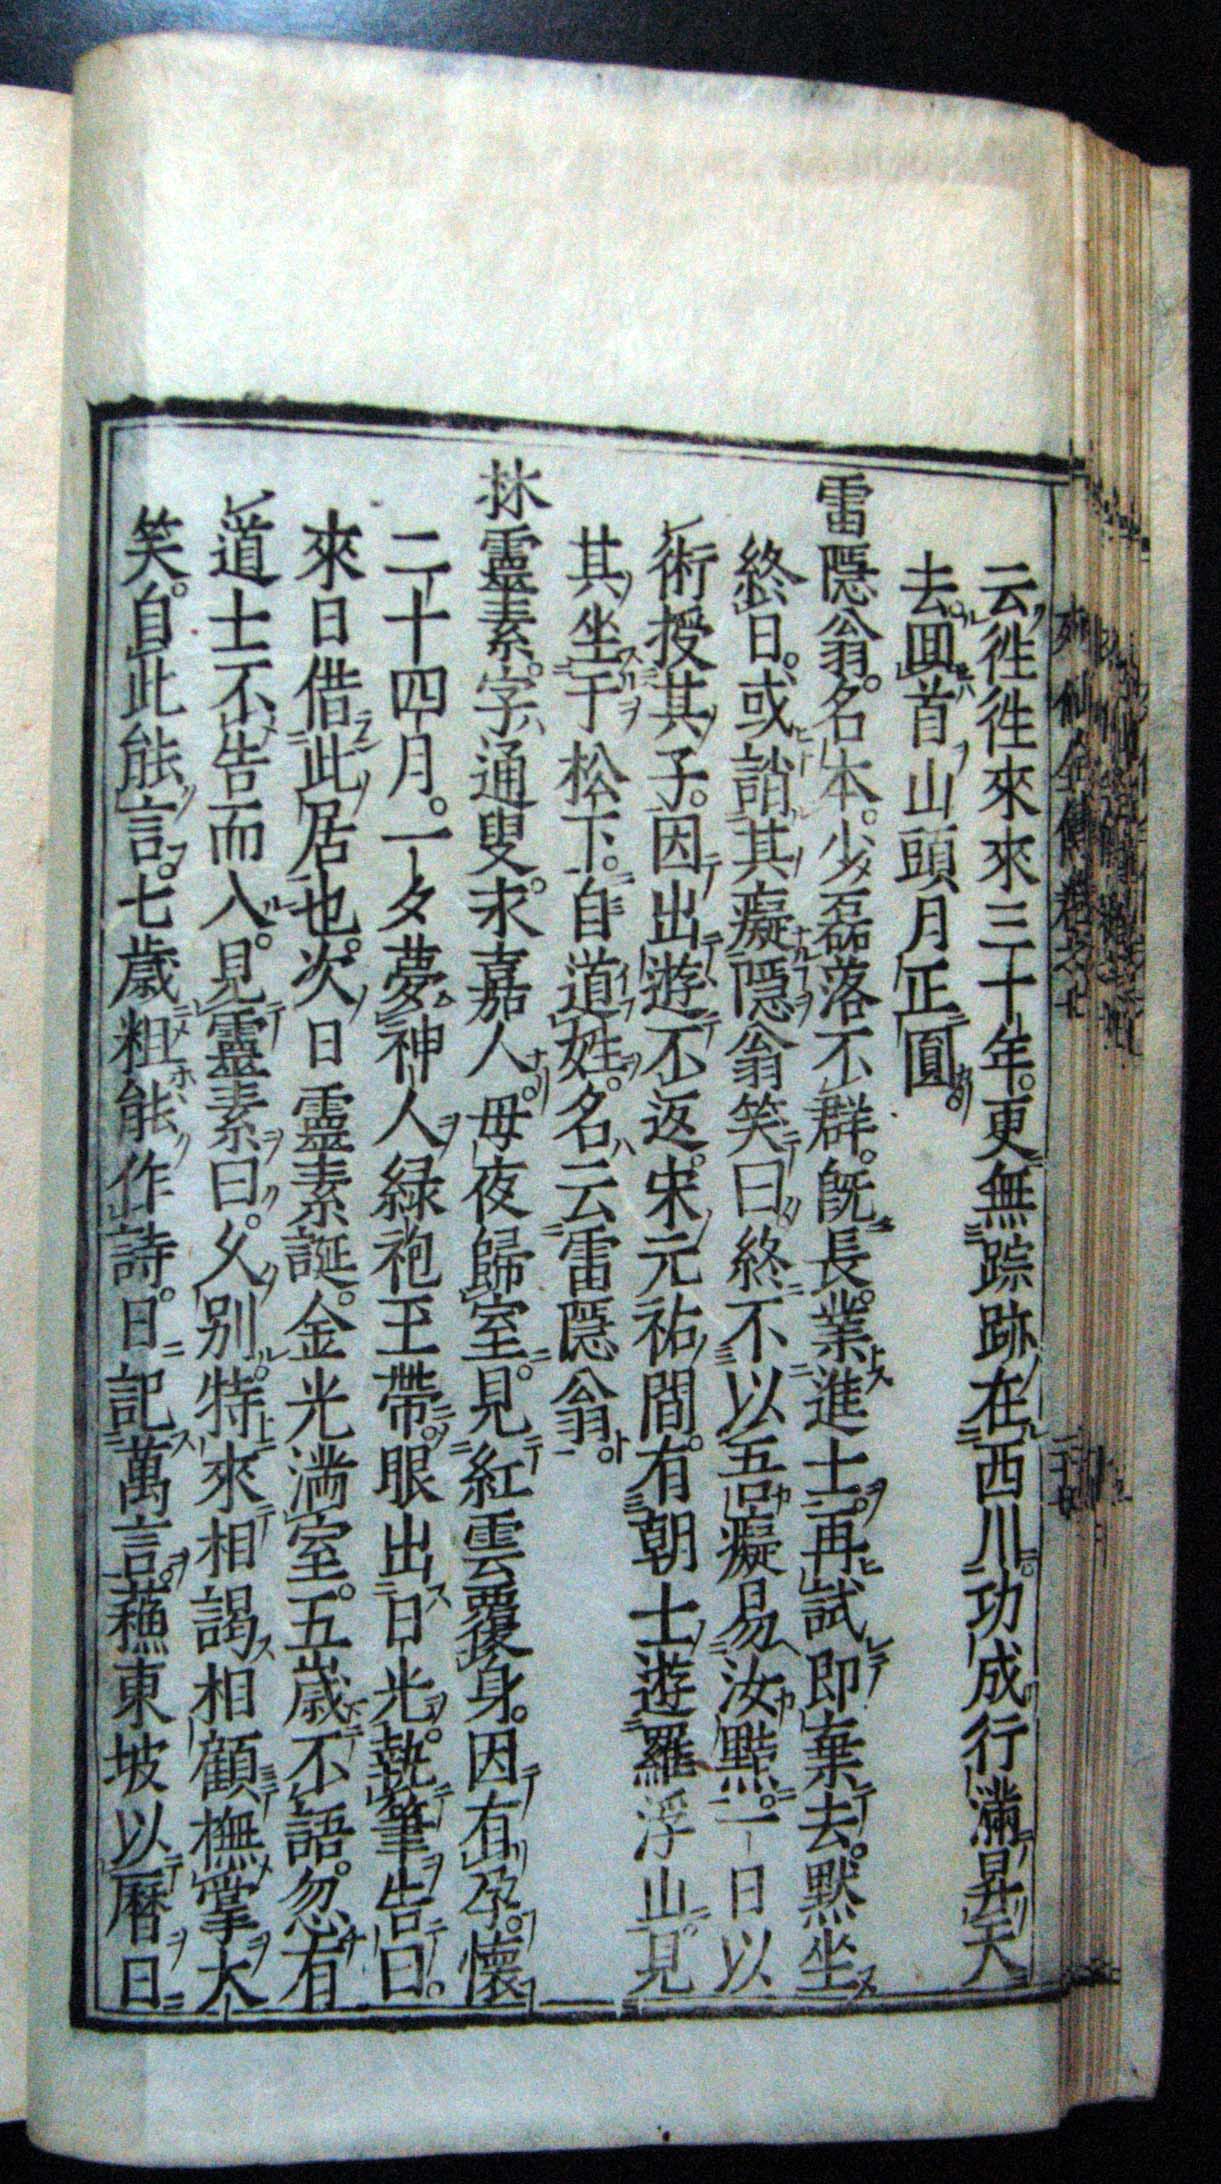 云徃徃來來三十年更無踪跡在西川功成行滿昇天
去回首山頭月正圓
雷隱翁名本少磊落不群旣長業進士再試即棄去默坐
終日或誚其癡隱翁笑曰終不以吾癡易汝黠一日以
術授其子因出遊不返宋元祐間有朝士遊羅浮山見
其坐于松下自道姓名云雷隱翁
林靈素字通叟永嘉人母夜歸室見紅雲覆身因有孕懷
二十四月一夕夢神人綠袍玉帶眼出日光執筆告曰
來日借此居也次日靈素誕金光滿室五歲不語忽有
道士不告而入見靈素曰久別特來相謁相顧撫掌大
笑自此能言七歲粗能作詩日記萬言蘇東坡以曆日
列仙全傳卷之七